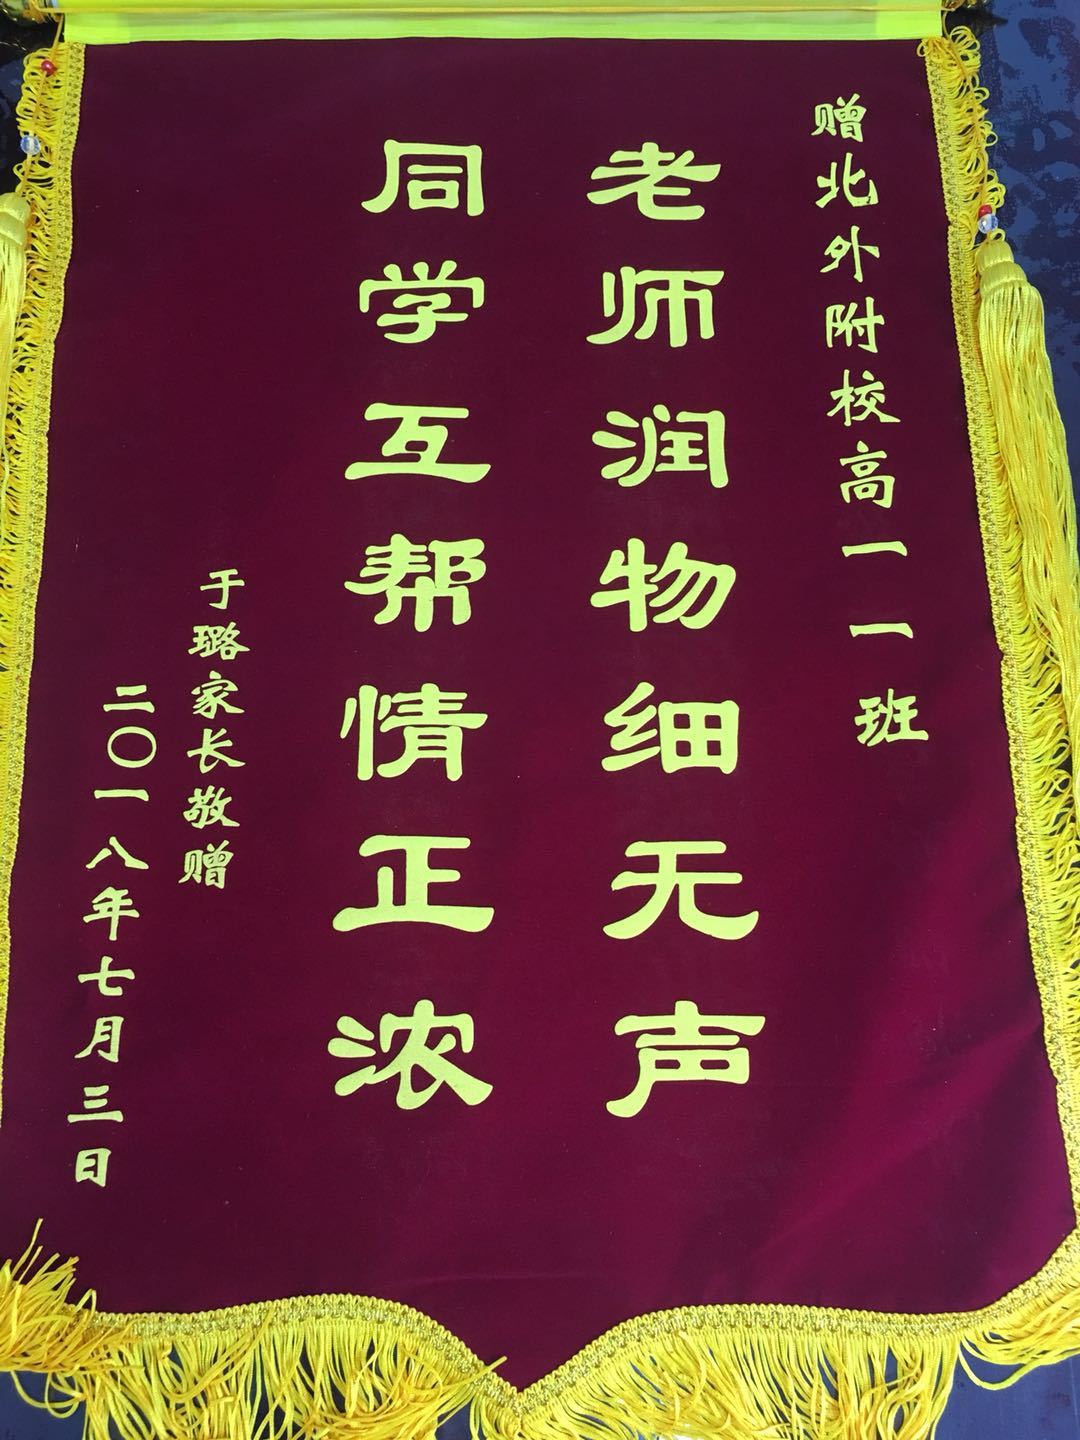 赠北外附校高一一班
老师润物细无声
同学互帮情正浓
于璐家长敬赠
二〇一八年七月三日